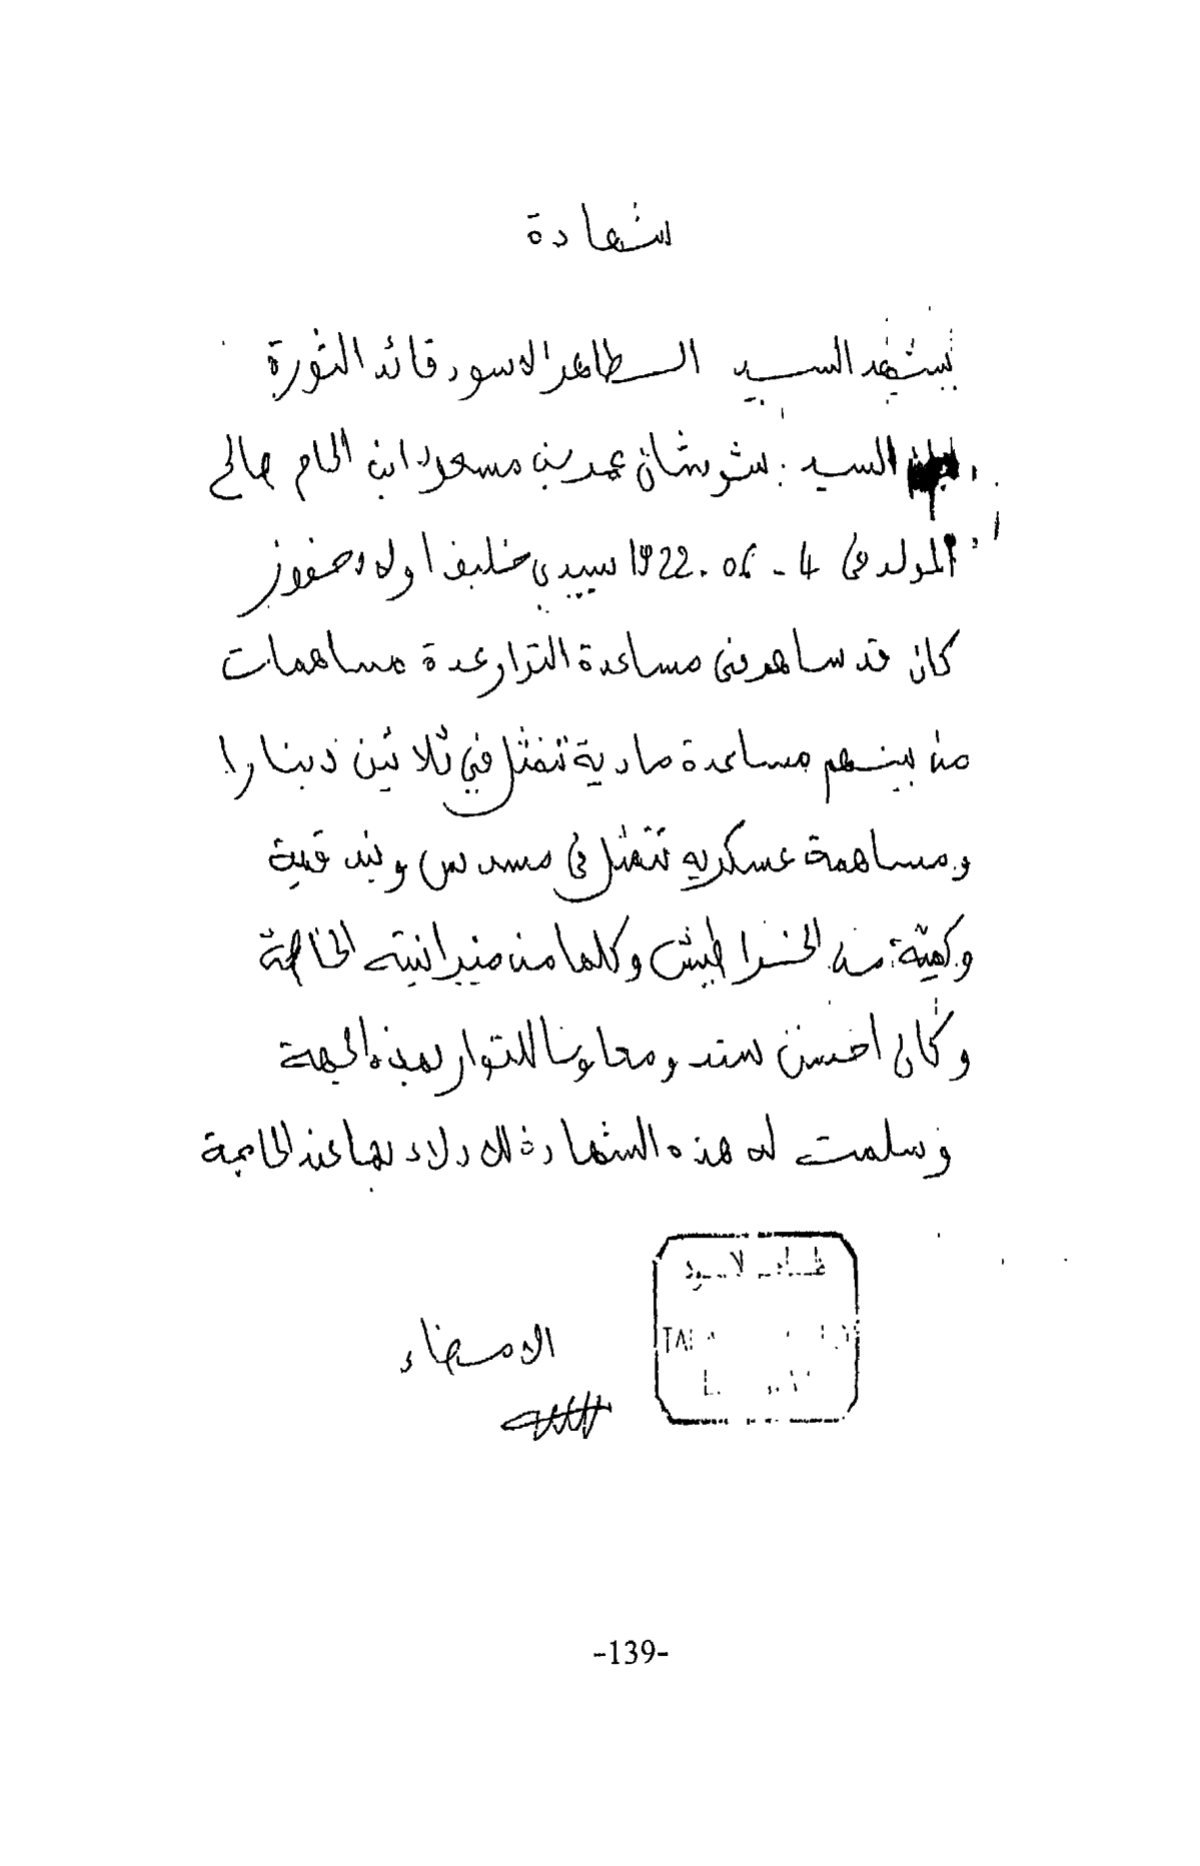 شهادة
يشهد السيد الطاهر الاسود قائد الثورة
السيد : شوشان عمر بن مسعود ابن الحاج صالح
المولد في 4 - 06. 1922 بسيدي خليفا اولاد حفوز
كان قد ساهم في مساعدة الثوار عدة مساهمات
من بينهم مساعدة مادية تتمثل في ثلاثين دينارا
ومساهمة عسكرية تتمثل في مسدس وبندقية
وكمية من الخراطيش وكلها من ميزانيته الخاصة
وكان احسن سند ومعاونا للثوار بهذه الجهة
وسلمت له هذه الشهادة للادلاء بها عند الحاجة
الامضاء
-139-